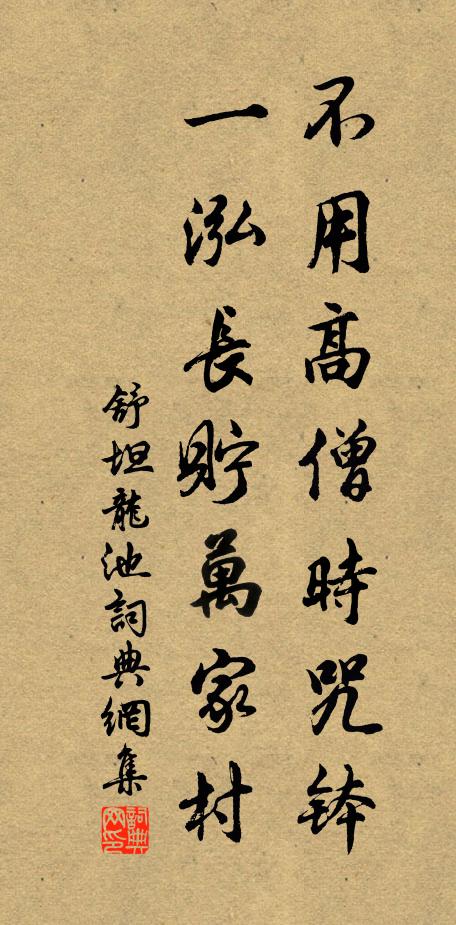 不用高僧時咒钵
一泓長貯萬家村
舒坦龍池詞典網集
詞典网印